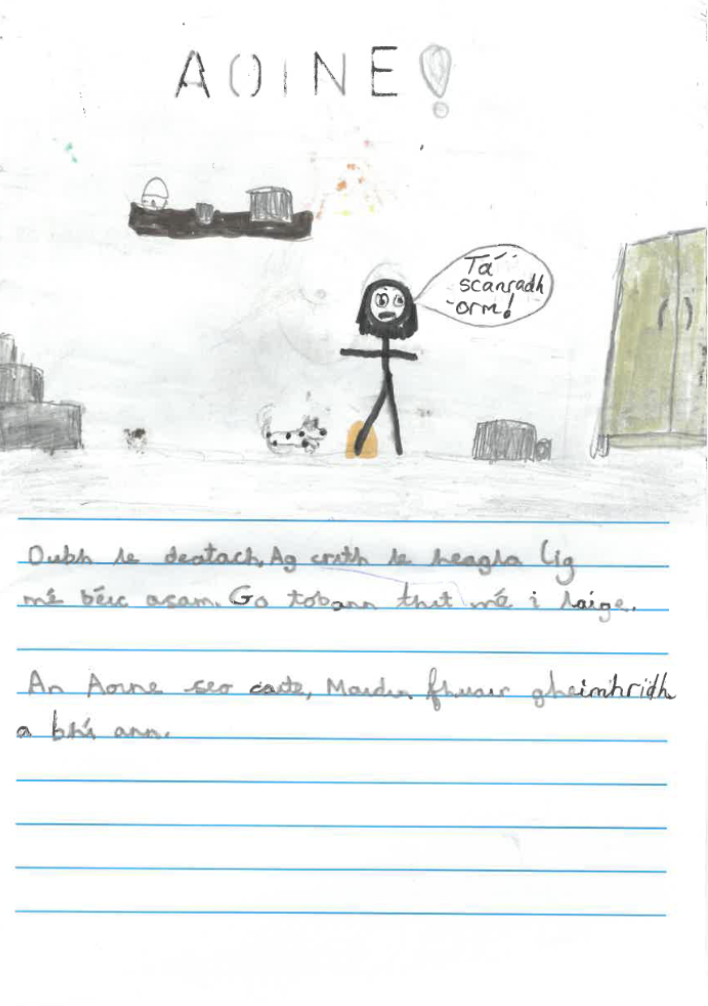 AOINE!
Tá
scanradh
orm!
Dubh le deatach, Ag crith le heagla lig
mé béic asam. Go tobann thit mé i laige.
An Aoine seo caite, Maidin fhuair gheimhridh
a bhí ann.